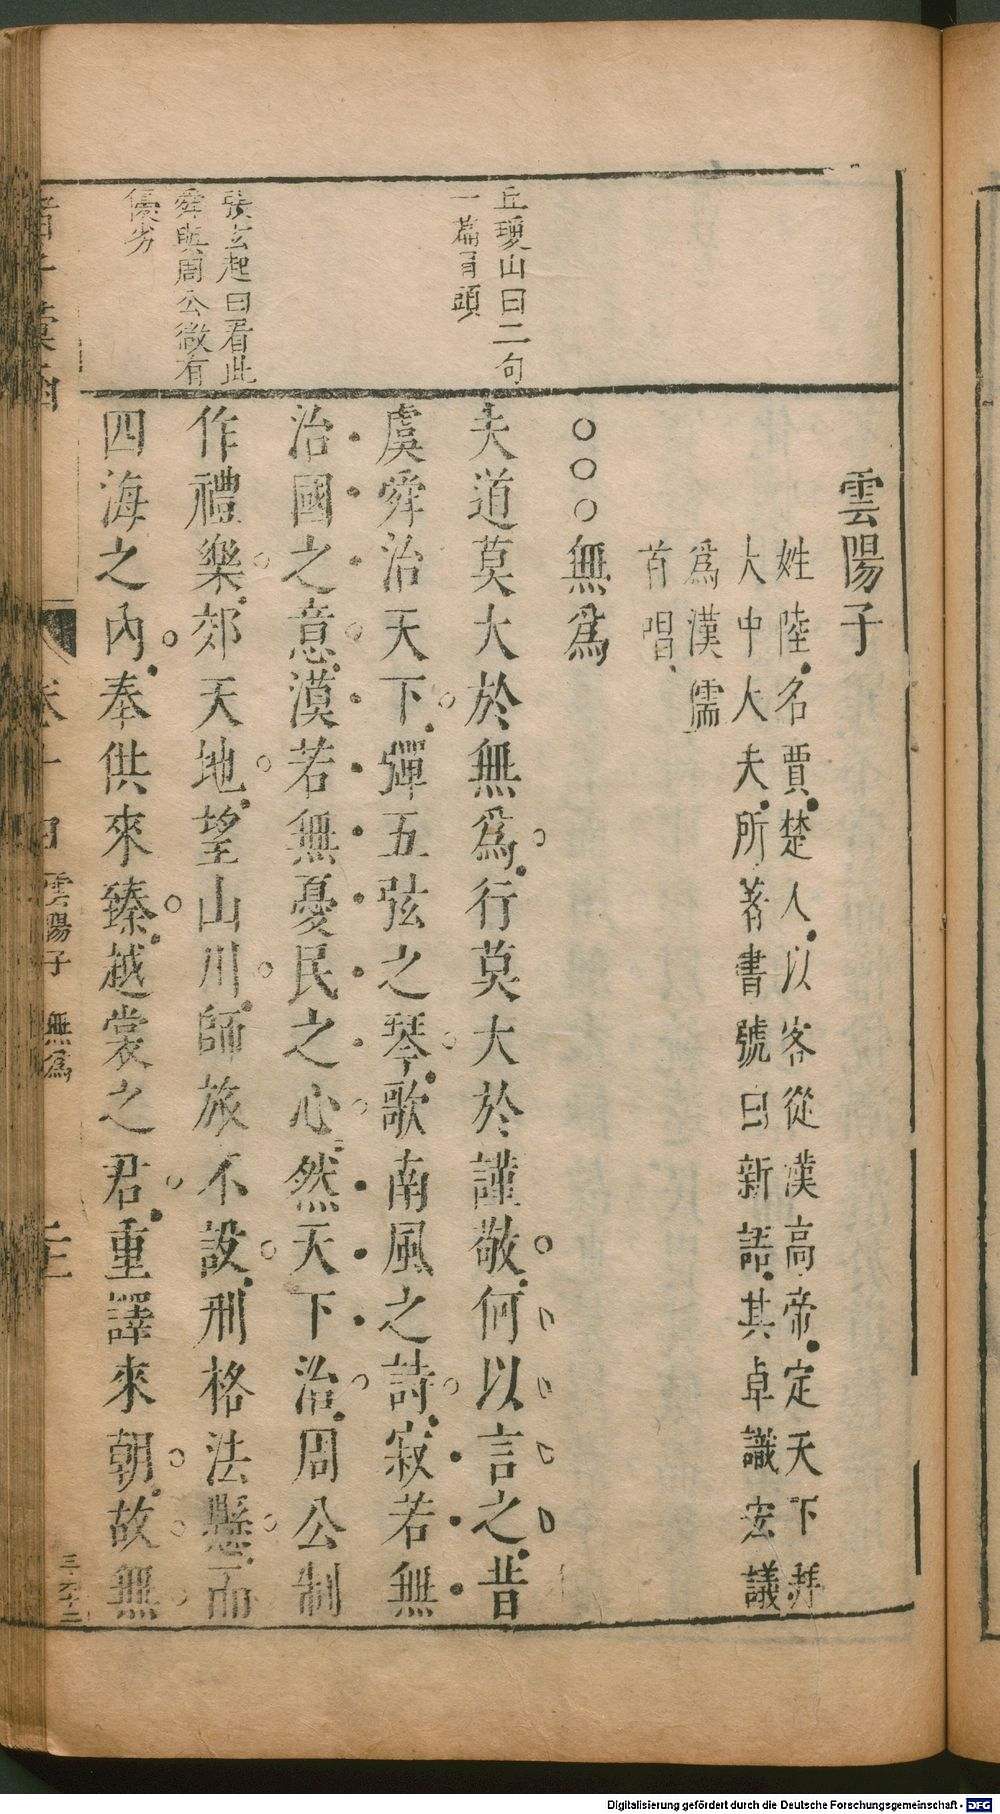 雲陽子
姓陸名賈楚人以客從漢高帝定天下拜
大中大夫所著書號曰新語其卓識宏議
爲漢儒
首唱
丘瓊山曰二句
一篇眉頭
○○○無爲
夫道莫大於無爲行莫大於謹敬何以言之昔
虞舜治天下彈五弦之琴歌南風之詩寂若無
治國之意漠若無憂民之心然天下治周公制
張玄超曰看此
舜與周公微有
優劣
作禮樂郊天地望山川師旅不設刑格法懸而
四海之內奉供來臻越裳之君重譯來朝故無
雲陽子 無爲
Digitalisierung gefördert durch die Deutsche Forschungsgemeinschaft - DFG